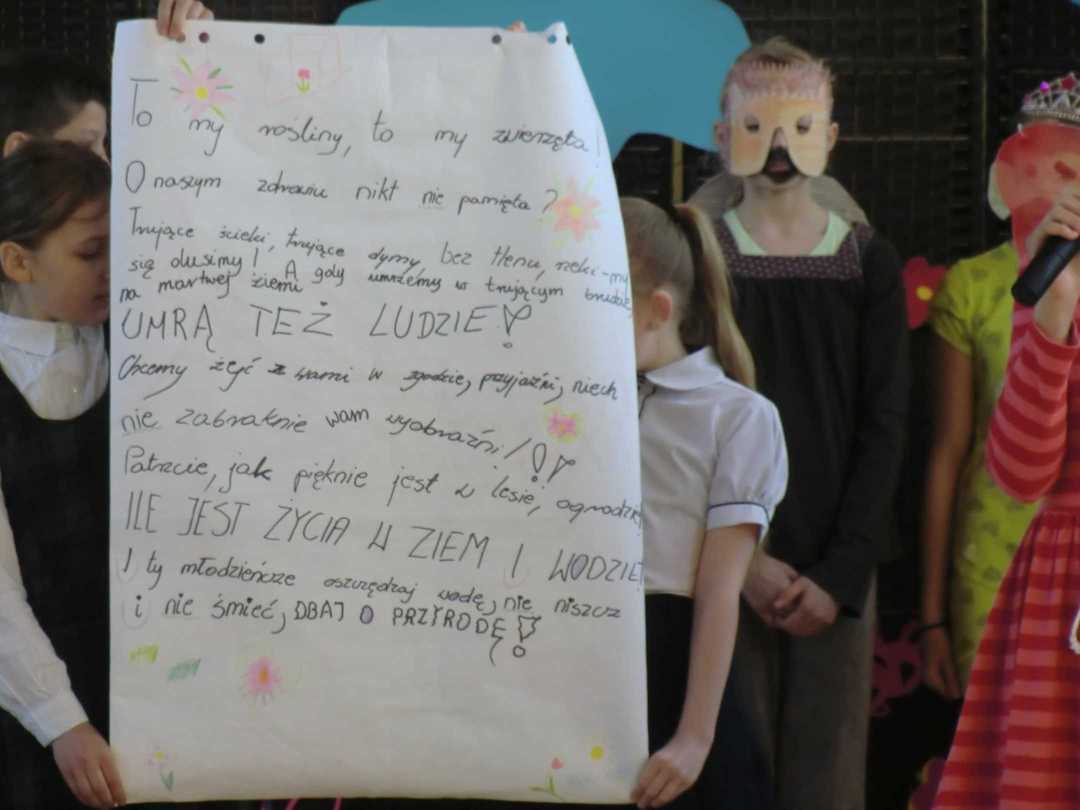 To my rośliny, to my zwierzęta!
O naszym zdrowiu nikt nie pamięta?
Trujące ścieki, trujące dymy bez tlenu, rzeki-my
się dusimy! A gdy umrzemy w trującym brudzie
na martwej ziemi
UMRĄ TEŻ LUDZIE!
Chcemy żyć z wami w zgodzie, przyjaźni, niech
nie zabraknie wam wyobraźni!!!
Patrzcie, jak pięknie jest w lesie, ogrodzie
ILE JEST ŻYCIA W ZIEM I WODZIE!
I ty młodzieńcze oszczędzaj wodę, nie niszcz
i nie śmieć, DBAJ O PRZYRODĘ!